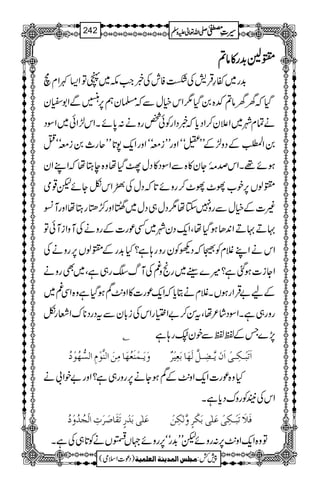 سیرتِ مصطفیٰ صلی اللہ تعالیٰ علیہ وسلم 242
مقتولین بدر کا ماتم
بدر میں کفار قریش کی شکست فاش کی خبر جب مکہ میں پہنچی تو ایسا کہرام مچ
گیا کہ گھر گھر ماتم کدہ بن گیا مگر اس خیال سے کہ مسلمان ہم پر ہنسیں گے ابوسفیان
نے تمام شہر میں اعلان کرا دیا کہ خبردار کوئی شخص رونے نہ پائے۔ اس لڑائی میں اسود
بن المطلب کے دو لڑکے ’’عقیل‘‘ اور ’’زمعہ‘‘ اور ایک پوتا ’’حارث بن زمعہ‘‘ قتل
ہوئے تھے۔ اس صدمۂ جان کاہ سے اسود کا دل پھٹ گیا تھا وہ چاہتا تھا کہ اپنے ان
مقتولوں پر خوب پھوٹ پھوٹ کر روئے تاکہ دل کی بھڑاس نکل جائے لیکن قومی
غیرت کے خیال سے رو نہیں سکتا تھا مگر دل ہی دل میں گھٹتا اور کڑھتا رہتا تھا اور آنسو
بہاتے بہاتے اندھا ہو گیا تھا، ایک دن شہر میں کسی عورت کے رونے کی آواز آئی تو
اس نے اپنے غلام کو بھیجا کہ دیکھو کون رو رہا ہے؟ کیا بدر کے مقتولوں پر رونے کی
اجازت ہو گئی ہے؟ میرے سینے میں رنج و غم کی آگ سلگ رہی ہے، میں بھی رونے
کے لیے بے قرار ہوں۔ غلام نے بتایا کہ ایک عورت کا اونٹ گم ہو گیا ہے وہ اسی غم میں
رو رہی ہے۔ اسود شاعر تھا، یہ سن کر بے اختیار اس کی زبان سے یہ دردناک اشعار نکل
پڑے جس کے لفظ لفظ سے خون ٹپک رہا ہے ؎
اَتَبْکِیْ اَنْ یَّضِلَّ لَھَا بَعِیْرٌ وَیَمْنَعُھَا مِنَ النَّوْمِ السُّھُوْدُ
کیا وہ عورت ایک اونٹ کے گم ہو جانے پر رو رہی ہے؟ اور بے خوابی نے
اس کی نیند کو روک دیا ہے۔
فَلَا تَبْکِیْ عَلٰی بَکْرٍ وَّلٰکِنْ عَلٰی بَدْرٍ تَقَاصَرَتِ الْجُدُوْدُ
تو وہ ایک اونٹ پر نہ روئے لیکن ’’بدر‘‘ پر روئے جہاں قسمتوں نے کوتاہی کی ہے۔
پیش کش: مجلس المدینۃ العلمیۃ (دعوت اسلامی)